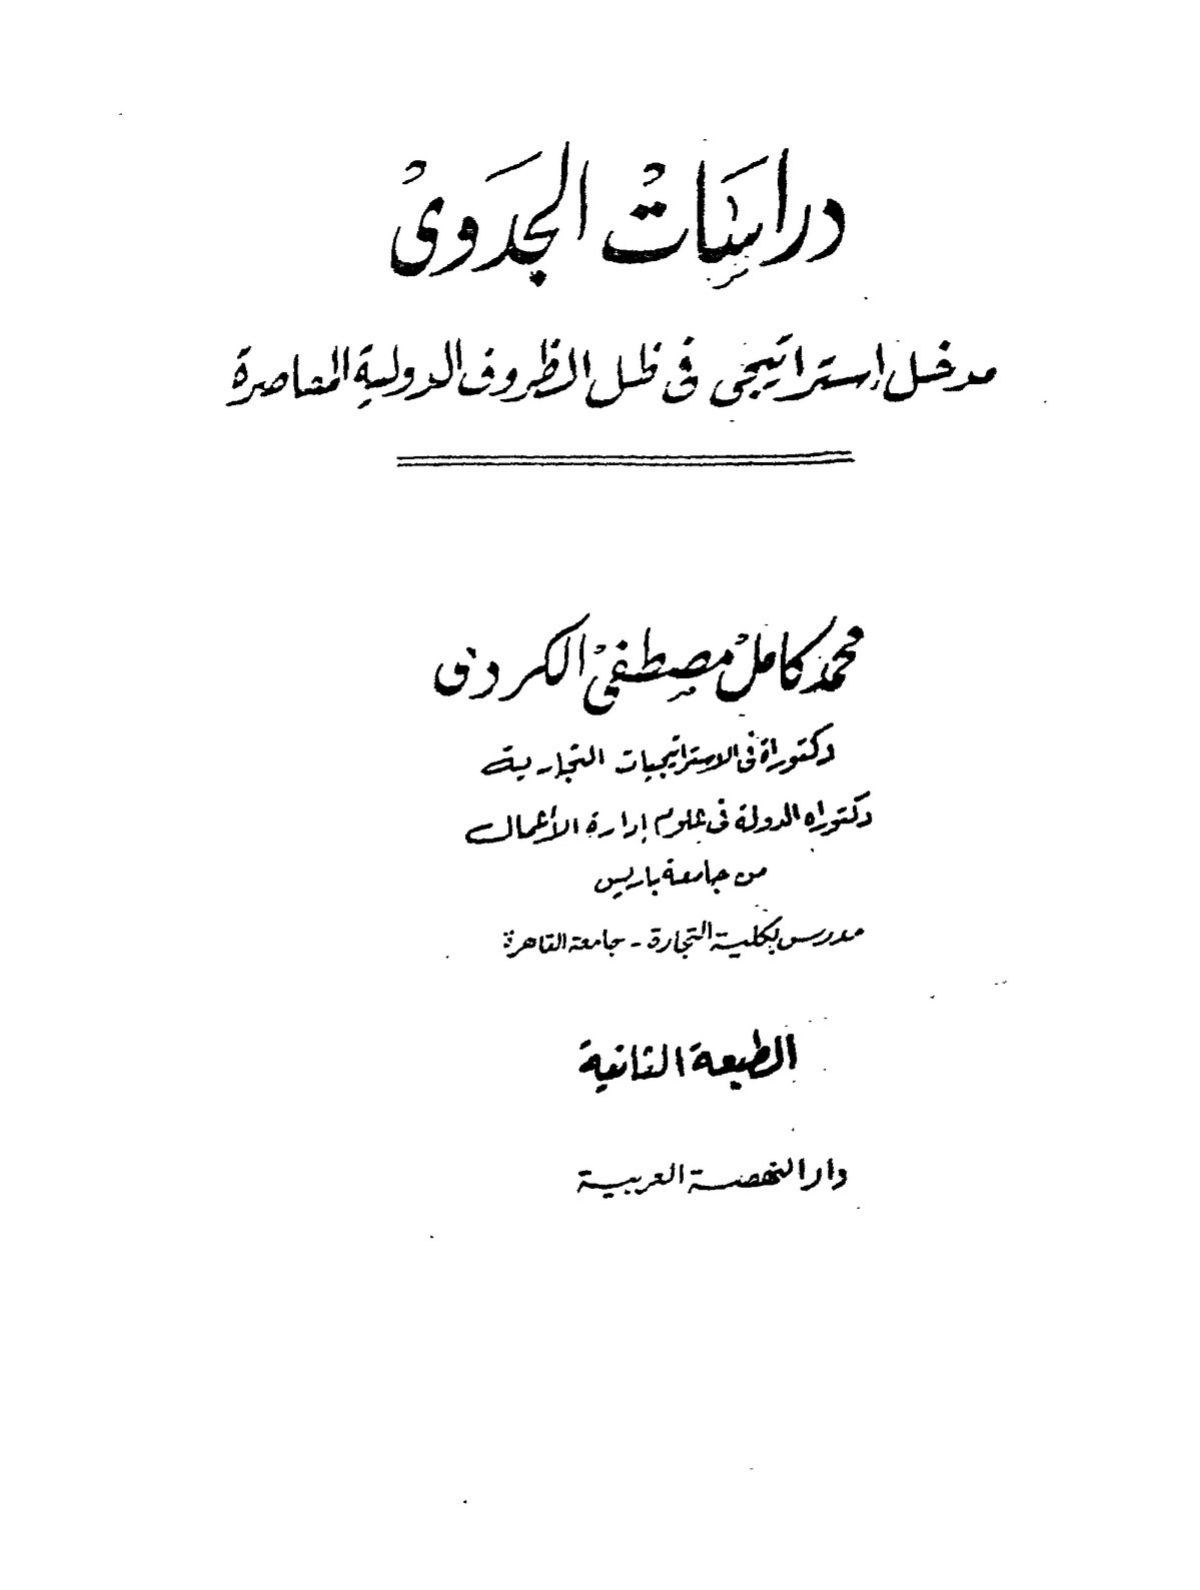 دراسات الجدوى
مدخل إستراتيجى فى ظل الظروف الدولية المعاصرة
محمد كامل مصطفى الكردى
دكتوراة فى الاستراتيجيات التجارية
دكتوراه الدولة فى علوم إدارة الأعمال
من جامعة باريس
مدرس بكلية التجارة - جامعة القاهرة
الطبعة الثانية
دار النهضة العربية